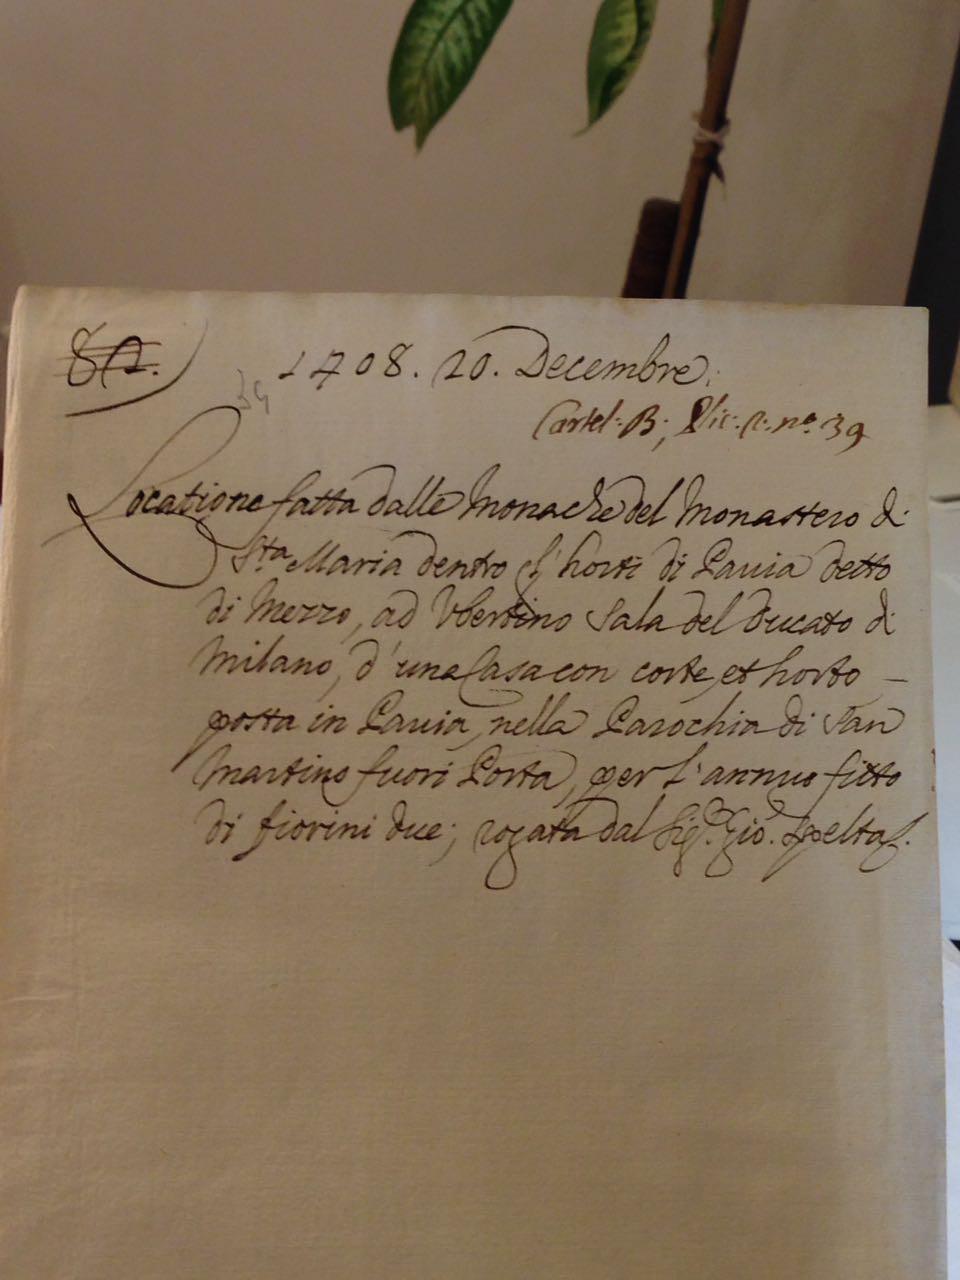 82.
1408. 20. Decembre.
39
Cartel: B; Fic: 2. nº. 39
Locatione fatta dalle Monache del Monastero di
Sta Maria dentro gl'horti di Pavia detto
di Mezzo, ad Ubertino Sala del Ducato di
Milano, d'una Casa con corte, et horto –
posta in Pavia, nella Parochia di San
Martino fuori Porta, per l'annuo fitto
di fiorini due; rogata dal Sigr. Gio. Spelta